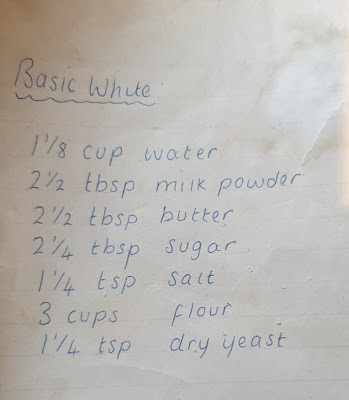 Basic White
1 1/8 cup water
2 1/2 tbsp milk powder
2 1/2 tbsp butter
2 1/4 tbsp sugar
1 1/4 tsp salt
3 cups flour
1 1/4 tsp dry yeast